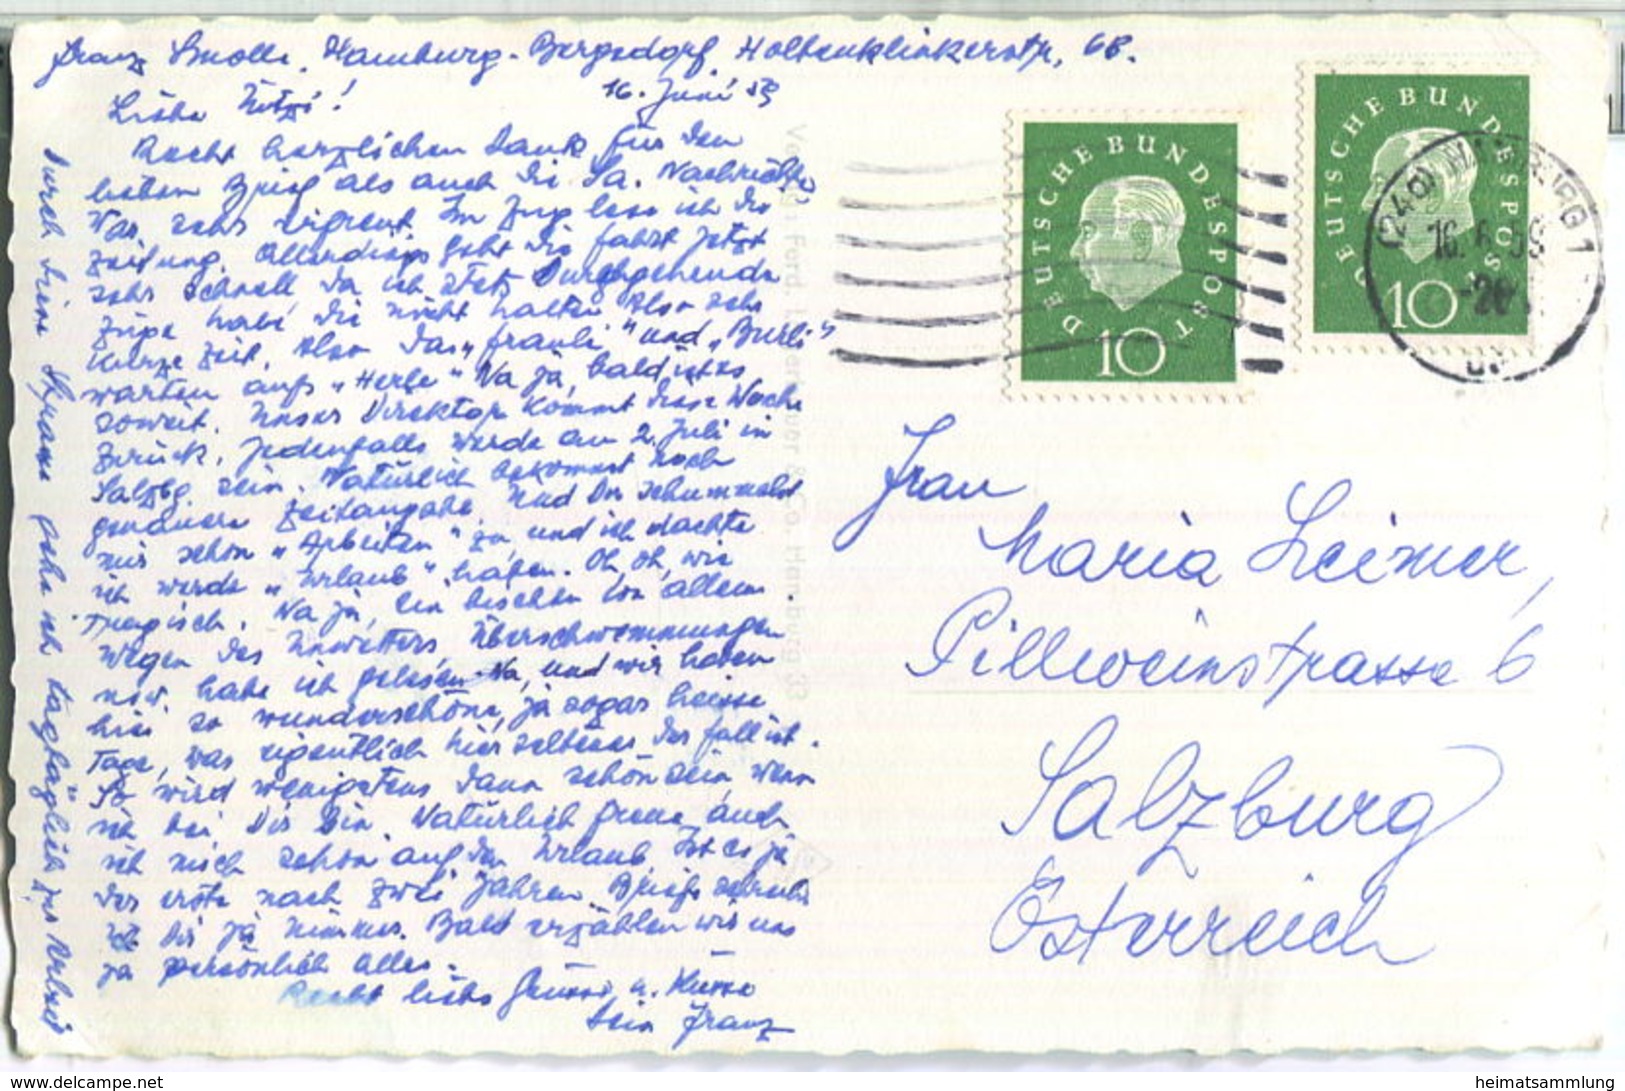 Franz Smolle, Hamburg-Bergedorf Holtenklinkerstr. 68.
16. Juni 59
Liebe Mitzi!
Recht herzlichen Dank für den
lieben Brief als auch die Sa. Nachrichten
War sehr eigrent Im Zug lese ich die
Zeitung. Allerdings geht die fahrt jetzt
sehr schnell da ich stets Durchgehende
Züge habe die nicht halten Also sehr
kurze Zeit. Also das „frauli" und „Burli"
warten aufs „Herle" Na ja, bald ist es
soweit. Unser Direktor kommt diese Woche
zurück. Jedenfalls werde am 2. Juli in
Salzbg. sein. Natürlich bekommst noch
genauere Zeitangabe. Und Du schummelst
mir schon „Arbeiten" zu und ich dachte
ich werde „Urlaub" haben. Oh, oh, wie
Tragisch. Na ja, ein bischen von allem.
Wegen des Unwetters Überschwemmungen
usw. habe ich gelesen Na, und wir haben
hier so wunderschöne, ja sogar heisse
Tage, was eigentlich hier seltener der fall ist.
So wird wenigstens dann schön sein wenn
ich bei Dir bin. Natürlich freue auch
ich mich schon auf den Urlaub Ist es ja
der erste nach zwei Jahren. Briefe schreibe
ich Dir ja nimmer. Bald erzählen wir uns
ja persönlich alles.
Recht liebe Grüsse u. Küsse
Dein Franz
Durch Deine Strasse gehe ich tagtäglich
DEUTSCHE BUNDESPOST
10
DEUTSCHE BUNDESPOST
10
(24a) HAMBURG 1
16. 6. 59
-20
Frau
Maria Leixner,
Pillweinstrasse 6
Salzburg
Österreich
& Co. Hamburg 33
delcampe.net
heimatsammlung